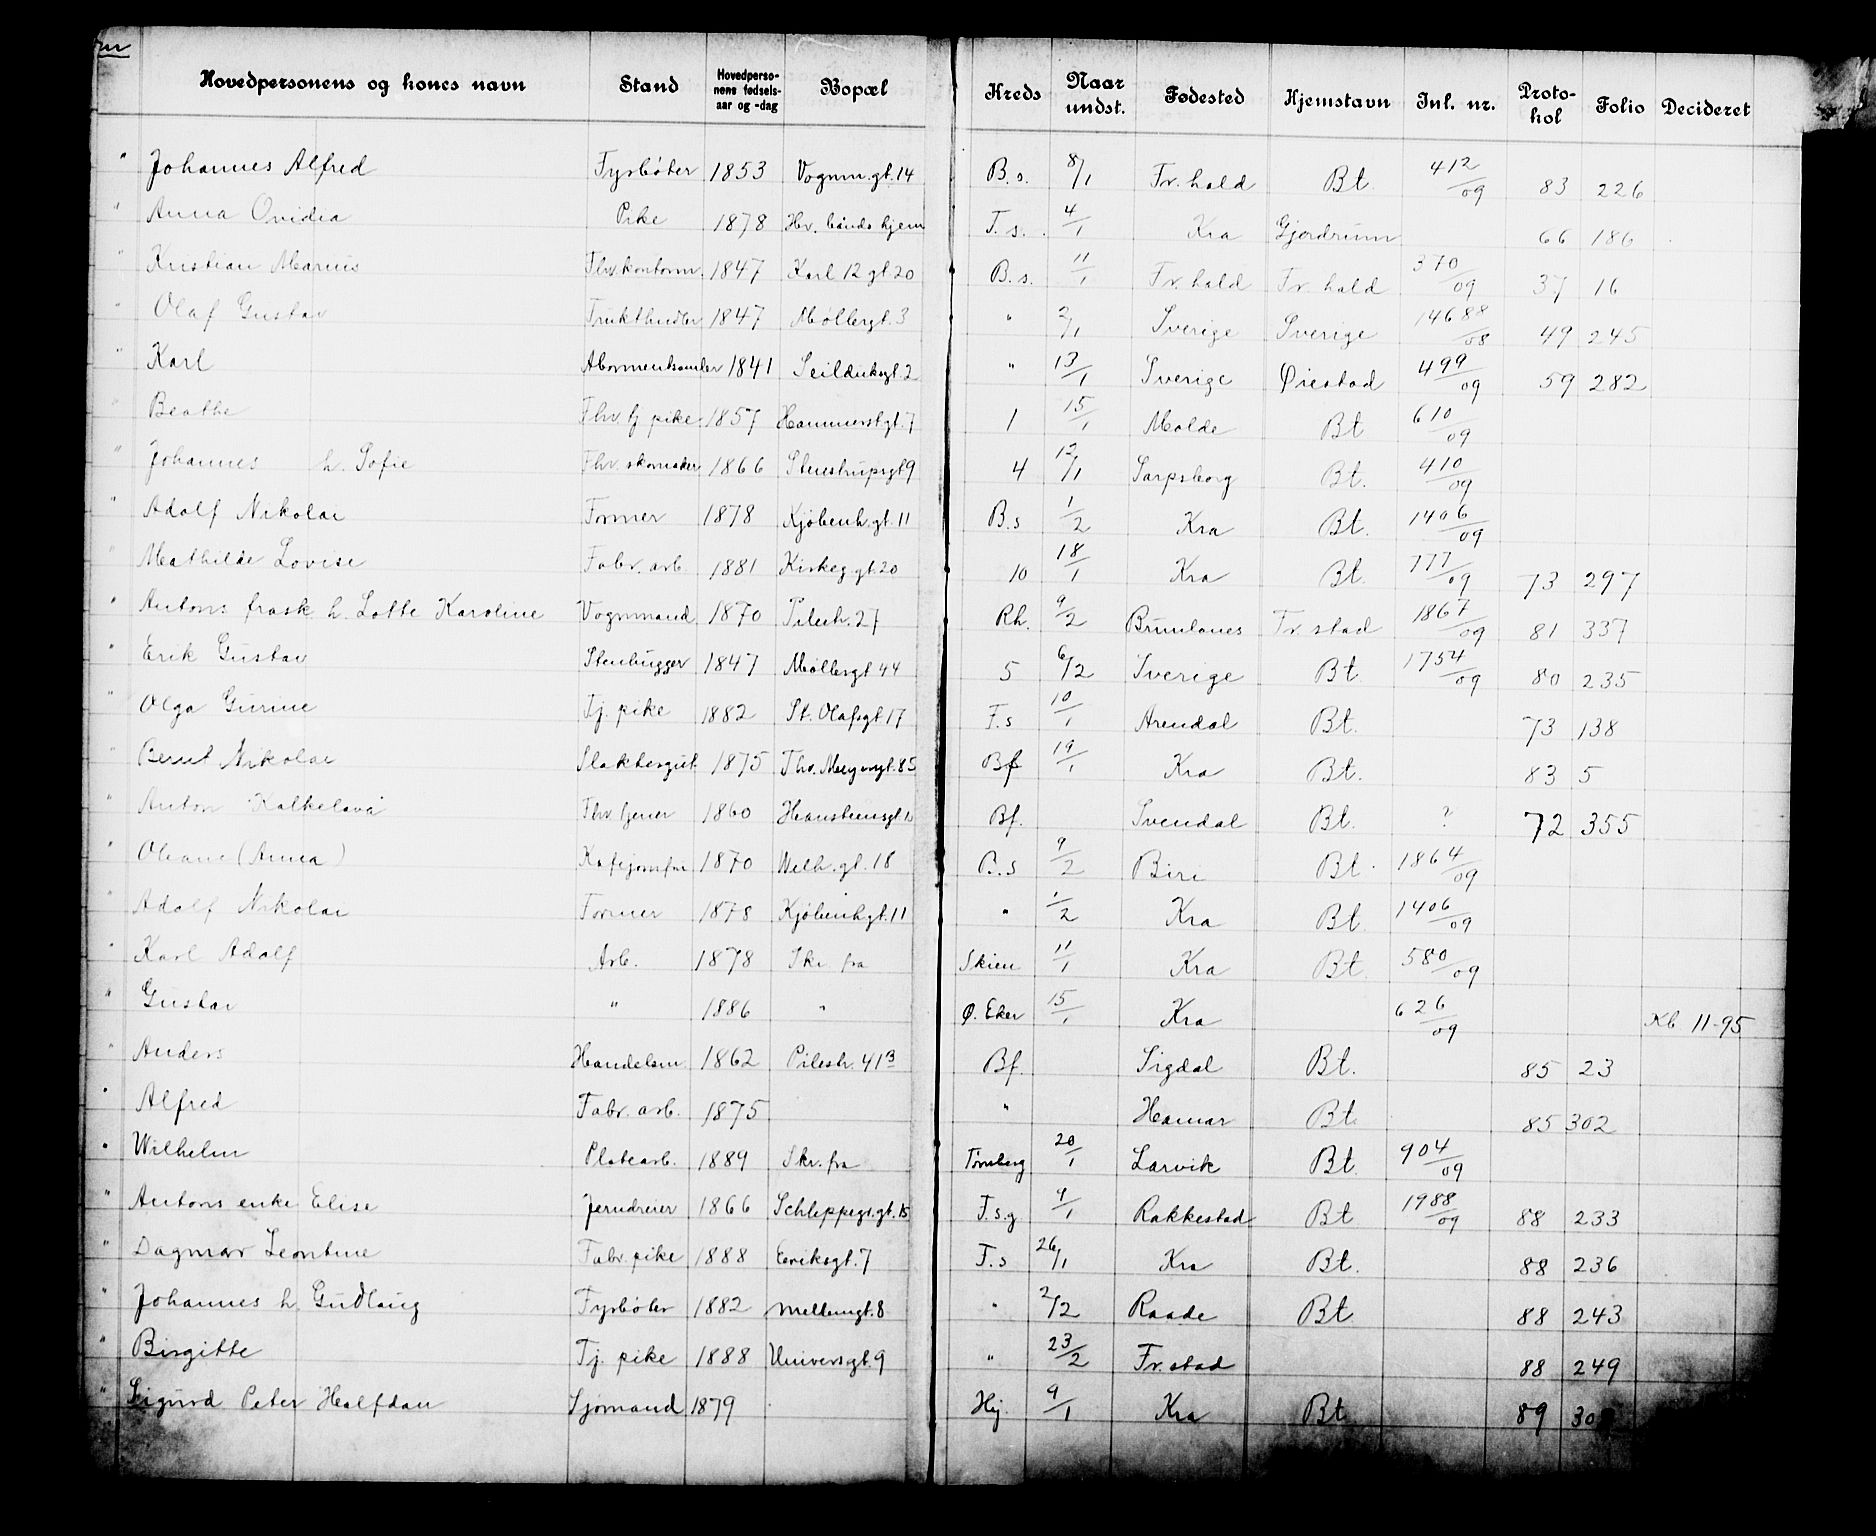 Hovedpersonens og kones navn Stand Hovedpersonens fødselsaar og -dag Bopæl Kreds Naar undst. Fødested Hjemstavn Inl. nr. Protokol Folio Decideret
" Johannes Alfred Fyrbøter 1853 Vognm.gt. 14 B.s. 8/1 Fr.hald Bt. 412/09 83 226
" Anna Ovidia Pike 1878 Hv. bånds hjem F.s. 4/1 Kra Gjerdrum 66 186
" Kristian Marius Fhv. kontorm. 1847 Karl 12 gt. 20 B.s. 11/1 Fr.hald Fr.hald 370/09 37 16
" Olaf Gustav Frukthndler 1847 Møllergt. 3 " 2/1 Sverige Sverige 14688/08 49 245
" Karl 1841 Seilduksgt. 2 " 13/1 Sverige Øiestad 499/09 59 282
" Beathe Fhv. tj pike 1857 Hammerstgt. 7 1 15/1 Molde Bt 610/09
" Johannes h. Sofie Fhv. skomaker 1866 Stenstrupsgt 9 4 12/1 Sarpsborg Bt. 410/09
" Adolf Nikolai Former 1878 Kjøbenh.gt. 11 B.s 1/2 Kra Bt. 1406/09
" Mathilde Lovise Fabr. arb. 1881 Kirkeg gt. 20 10 18/1 Kra Bt. 777/09 73 297
" Antons frask h. Lotte Karoline Vognmand 1870 Pilestr. 27 Rh. 9/2 Brunlanes Fr.stad 1867/09 81 337
" Erik Gustav Stenhugger 1847 Møllergt 44 5 6/2 Sverige Bt. 1754/09 80 235
" Olga Gurine Tj. pike 1882 St. Olafsgt 17 F.s 10/1 Arendal Bt. 73 138
" Bernt Nikolai Slaktergut. 1875 Thv. Meyersgt. 85 Bf 19/1 Kra Bt. 83 5
" Anton Kalkelava Fhv. tjener 1860 Hansteensgt Bf. Svendal Bt. ? 72 355
" Oleane (Anna) Kafejomfru 1870 Welh.gt. 18 B.s 9/2 Biri Bt. 1864/09
" Adolf Nikolai Former 1878 Kjøbenhgt. 11 " 1/2 Kra Bt 1406/09
" Karl Adolf Arb. 1878 Skr. fra Skien 11/1 Kra Bt. 580/09
" Gustav " 1886 " Ø. Eker 15/1 Kra 626/09 Kb 11-95
" Anders Handelsm. 1862 Pilestr. 41 B Bf. Sigdal Bt. 85 23
" Alfred Fabr. arb. 1875 " Hamar Bt. 85 302
" Wilhelm Platearb. 1889 Skr. fra Tønsberg 20/1 Larvik Bt. 904/09
" Antons enke Elise Jerndreier 1866 Schleppegr.gt. 15 F.s.g 9/1 Rakkestad Bt 1988/09 88 233
" Dagmar Leontine Fabr. pike 1888 Eeriksgt. 7 F.s 26/1 Kra Bt. 88 236
" Johannes h. Gudlaug Fyrbøter 1882 mellemgt. 8 " 2/2 Raade Bt 88 243
" Birgitte Tj. pike 1888 Universgt. 9 " 23/2 Fr.stad 88 249
" Sigurd Peter Halfdan Sjømand 1879 Hj. 9/1 Kra Bt 89